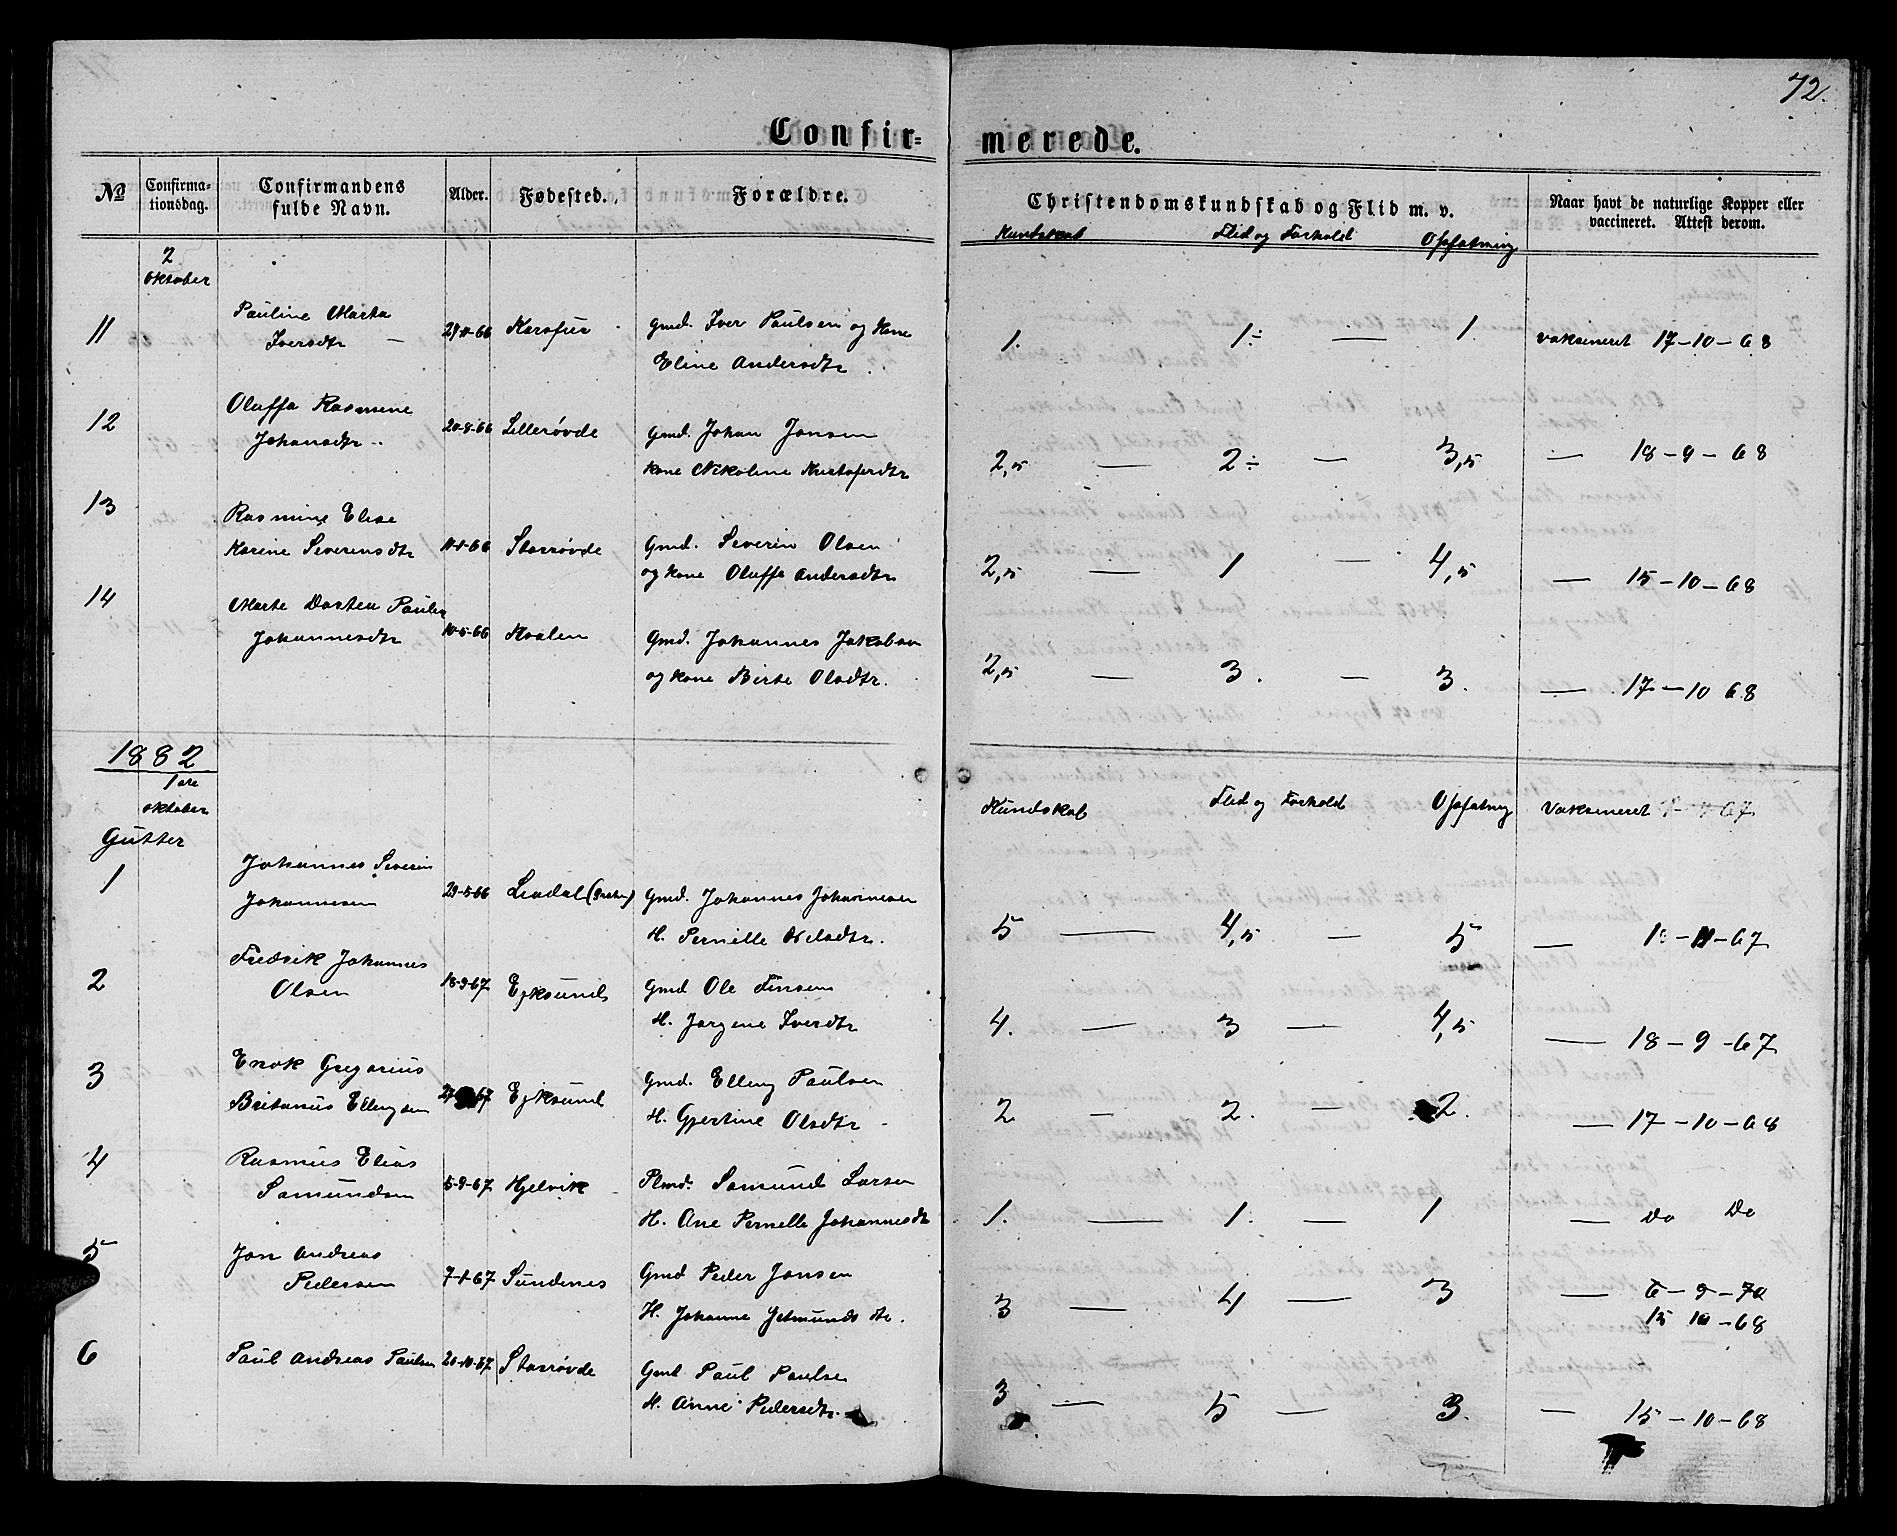 72.
Confir=
merede.
No
Confirma-
tionsdag.
Confirmandens
fulde Navn.
Alder.
Fødested.
Forældre.
Christendomskundskab og Flid m. v.
Naar havt de naturlige Kopper eller
vaccineret. Attest derom.
Kundskab Flid og Forhold Opfatning
2
Oktober
11 Pauline Marta
Iversdtr — 66 gmd. Iver Paulsen og Kone
Eline Andersdtr.
1. 1÷ — 1. vaksineret 17-10-68
12 Oluffa Rasmine
Johansdtr 20-8-66 Lillerøvde gmd. Johan Jonsen
Kone Nikoline Kristofersdtr
2,5 — 2÷ — 3,5 — 18-9-68
13 Rasmine Elise
Karine Severinsdtr 66 Storrøvde Gmd. Severin Olsen
og Kone Oluffa Andersdtr
2,5 — 1 — 4,5 — 15-10-68
14 Marte Paulin
Johannesdtr 10-5-66 gmd. Johannes Jakobsen
og Kone Birte Olsdtr.
2,5 — 3. — 3. — 17-10 68
1882
1ste
Oktober
Gutter
Kundskab Flid og Forhold Opfatning Vaksineret 67
1 Johannes Severin
Johannesen 29-5-66 Liadal gmd. Johannes Johannesen
H. Pernille Nilsdtr.
5 — 4,5 — 5 — 11-67
2 Fredrik Johannes
Olsen 18-9-67 Ejksund gmd Ole Finsen
H. Jørgine Iversdtr
4. — 3 — 4,5 — 18-9-67
3 Enok Gregorius
Britanus Ellingsen 67 Ejksund gmd. Elling Paulsen
H. Gjertine Olsdtr
2 — 2. — 2. — 17-10-68
4 Rasmus Elias
Samundsen 5-9-67 Hjelvik Plmd. Samund Larsen
H. Ane Pernelle Johannesdtr
1. — 1. — 1 — Do Do
5 Jon Andreas
Pedersen 7-1-67 Sundenes Gmd Peder Jonsen
H. Johanne Gjetmundsdtr.
3 — 4 — 3 — 6-9-70
15 10-68
6 Paul Andreas Paulsen 20-10-67 Storrøvde gmd Paul Paulsen
H. Anne Pedersdtr.
3 — 5 — 3. — 15-10-68